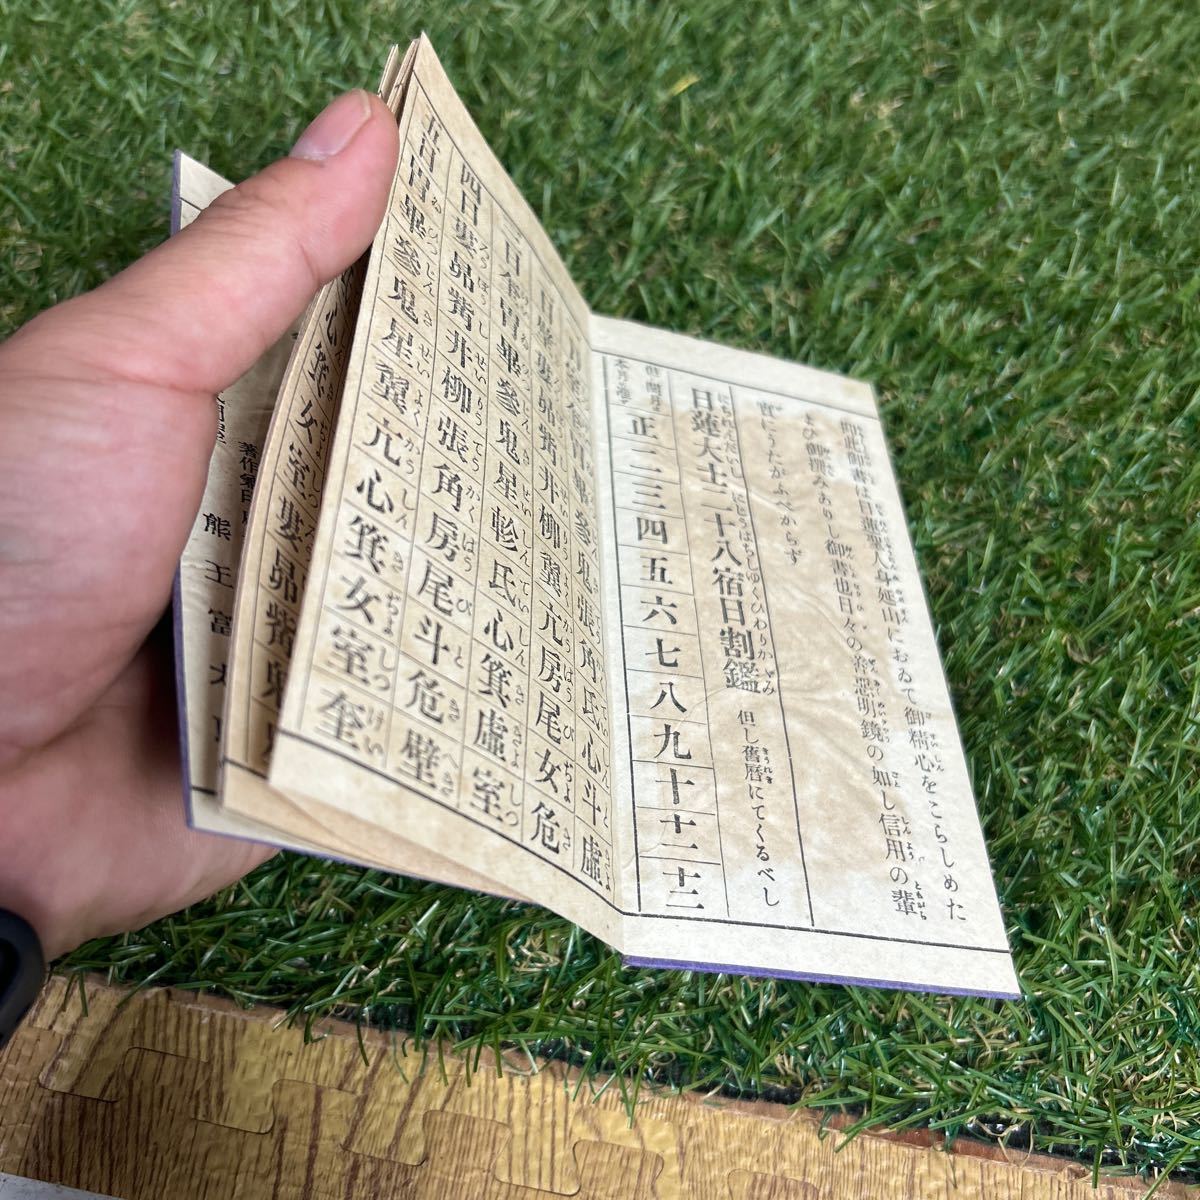 抑此御書は日蓮聖人身延山におゐて御精心をこらしめた
まひ御撰みありし御書也日々の善惡明鏡の如し信用の輩
實にうたがふべからず
日蓮大士二十八宿日割鑑 但し舊曆にてくるべし
正二三四五六七八九十十一十二
室奎胃畢參鬼張角氐心斗虛
日壁婁昴觜井柳翼亢房尾女危
日奎胃畢參鬼星軫氐心箕虛室
四日婁昴觜井柳張角房尾斗危壁
五日胃畢參鬼星翼亢心箕女室奎
心箕女室婁昴觜鬼
著作兼印
熊王富